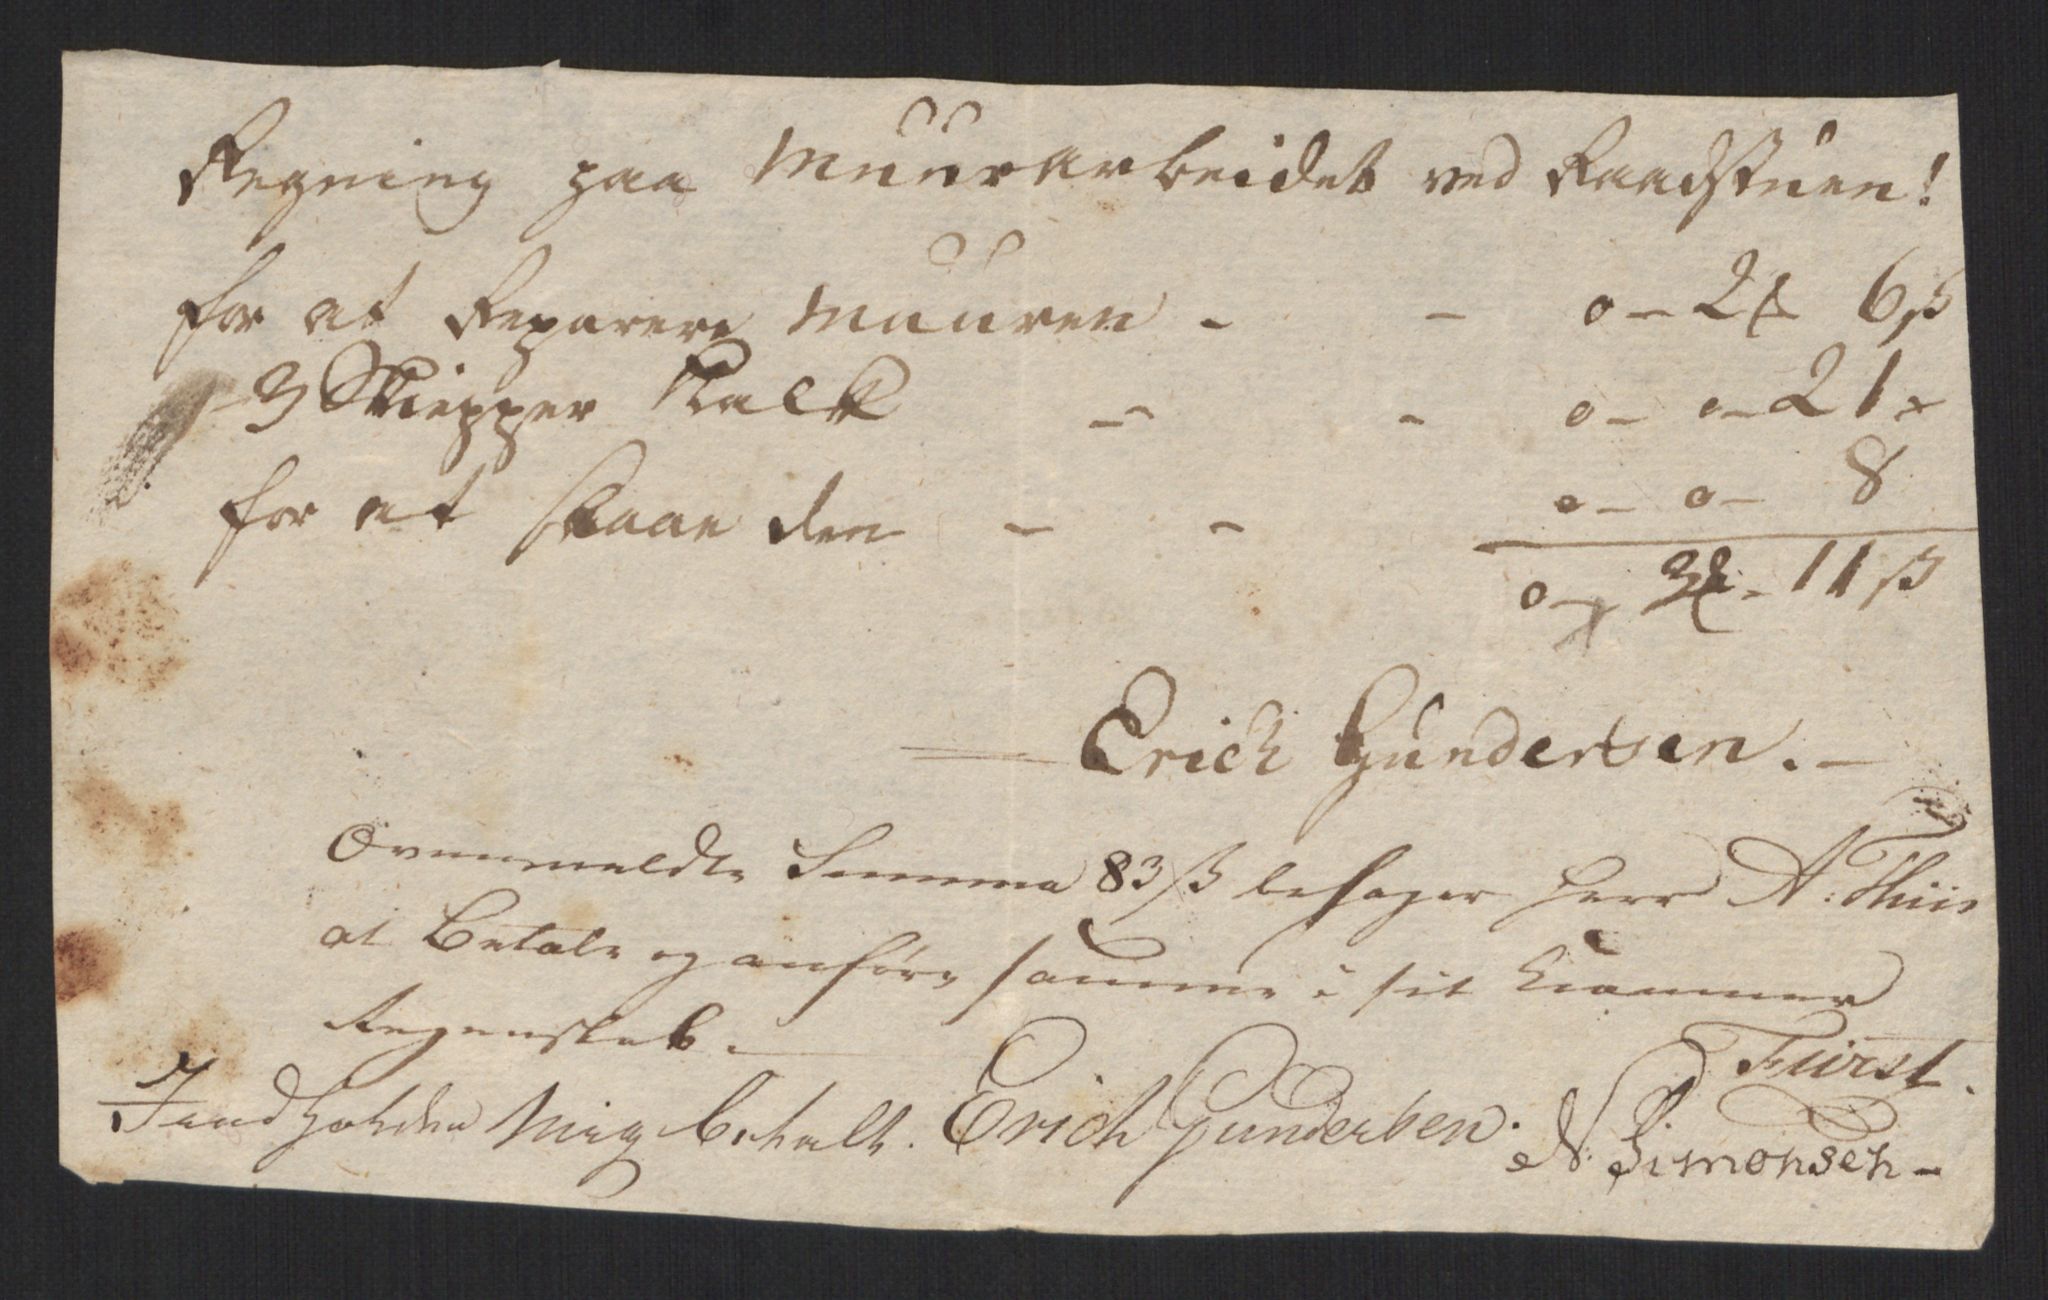 Regning paa Muurarbeidet ved Raadstuen!
for at Reparere Muuren - - 0 - 2 ℔ 6 ß
3 Skiepper Kalk - - 0 - 0 - 21 -
for at slaae den - - 0 - 0 - 8
0 - 3 - 11 ß
Erich Gundersen. -
Ovenmeldte Summa 83 ß behager Herr A: Thiis
at Betale og anføre samme i sit Kæmner
Regenskab. -
Fürst.
Hand Mig betalt. Erich Gundersen.
N. Simonsen -